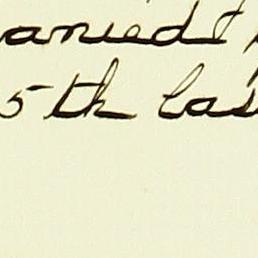 anied t
5th las